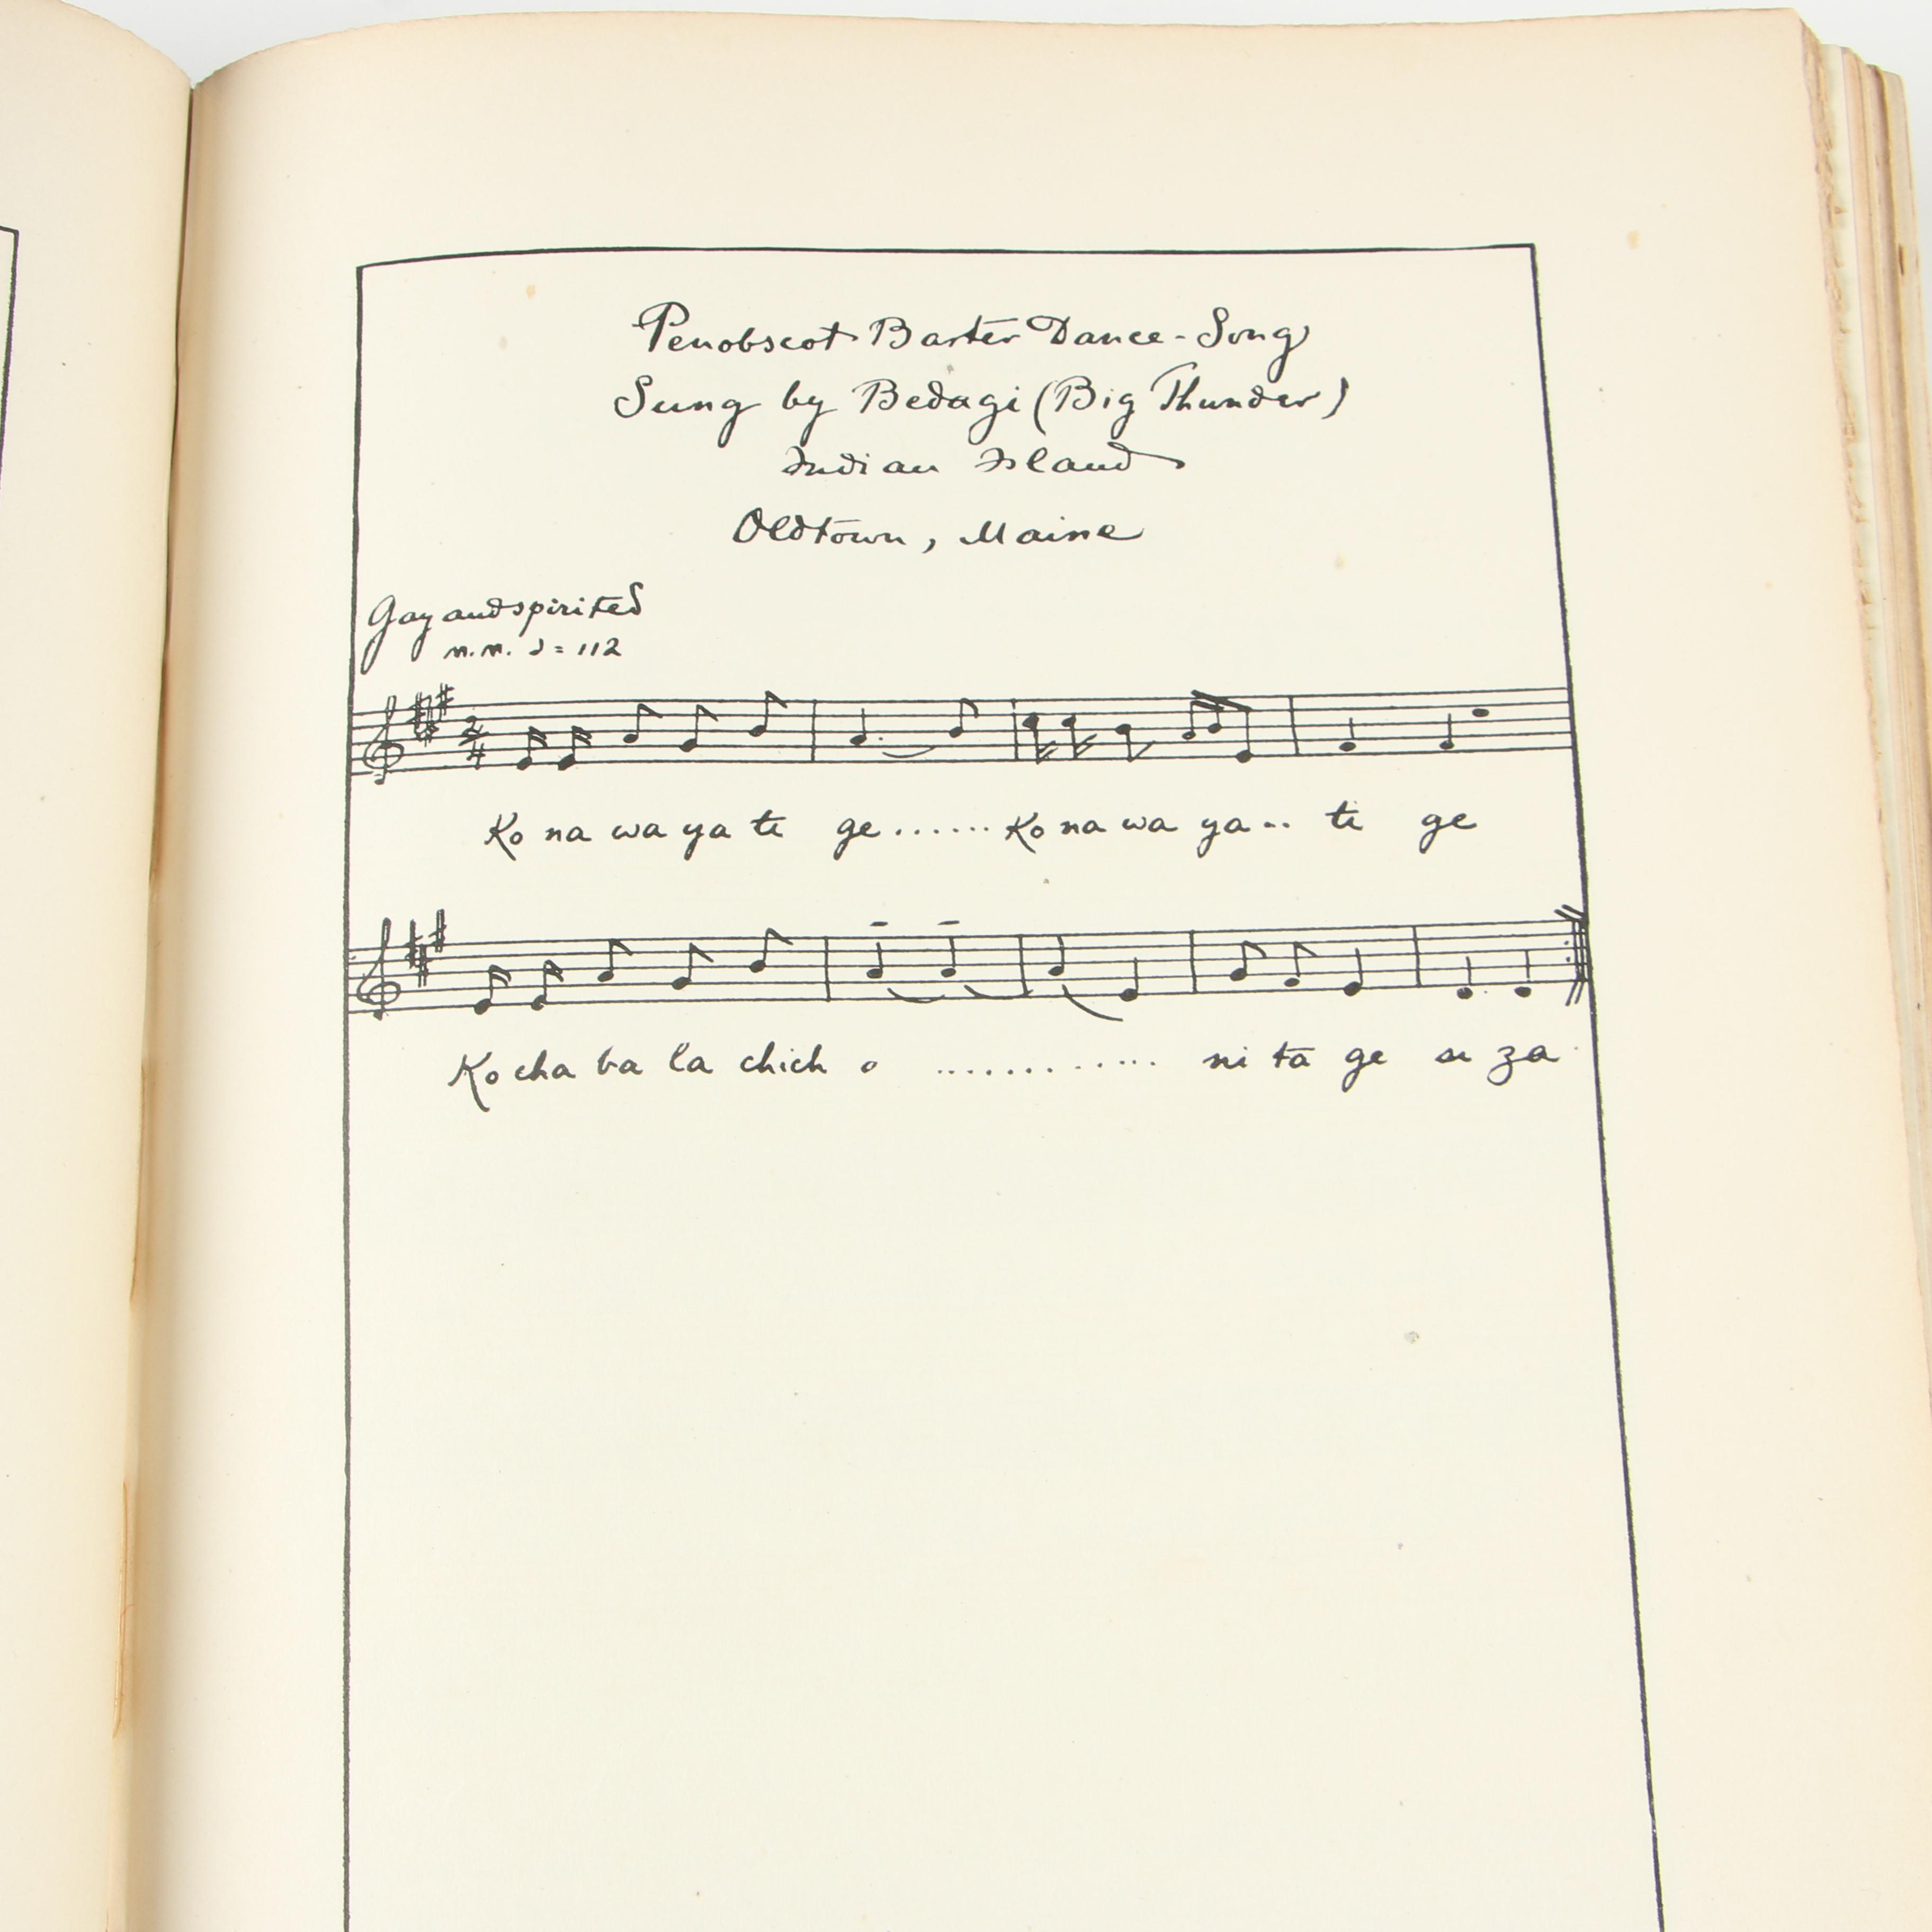 Penobscot Barter Dance-Song
Sung by Bedagi (Big Thunder)
Indian Island
Oldtown, Maine
Gay and spirited
M.M. ♩= 112
2/4
Ko na wa ya te ge...... Ko na wa ya.. te ge
Ko cha ba la chich o ............ ni ta ge su za